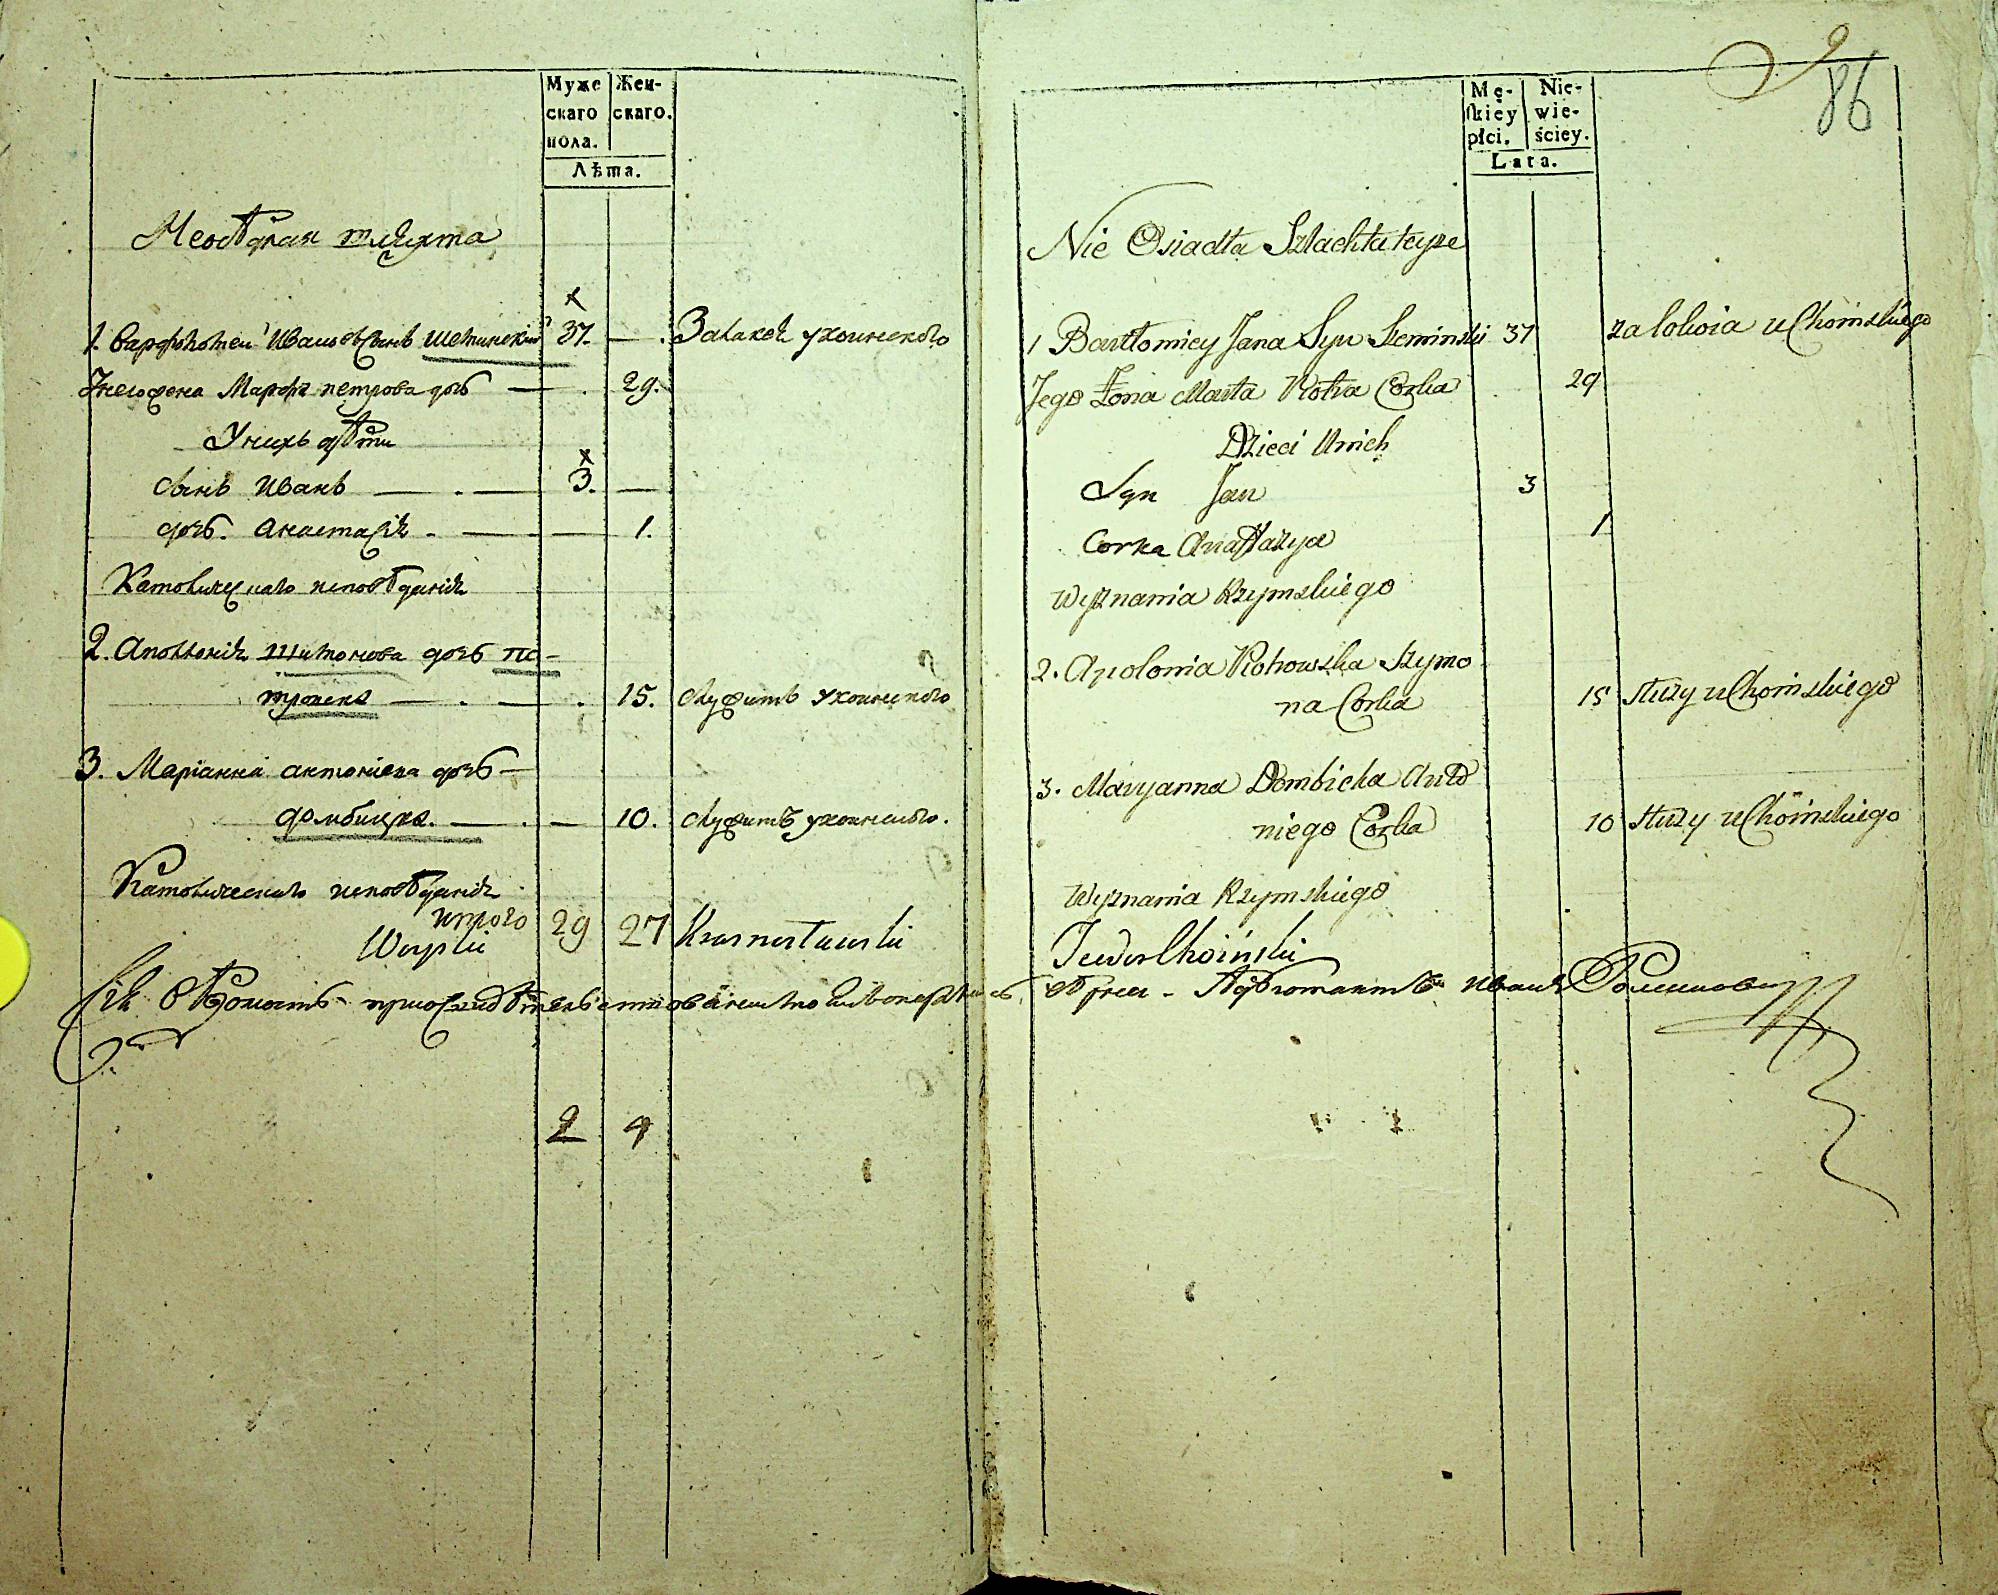 Муже
скаго
пола.
Жен-
скаго.
Лѣта.
Неосѣдлая шляхта
1. Варфоломей Ивановъ сынъ Шеминскій 37. За лакея у Хоинского
Его жена Марфа Петрова дочь 29.
У нихъ дѣти
сынъ Иванъ 3.
дочь. Анастасія 1.
Католическаго исповѣданія
2. Аполлонія Шимонова дочь
15. служитъ у Хоинского
3. Маріанна Антоніева дочь
Домбицка. 10. служитъ у Хоинского.
Католическаго исповѣданія
итого 29 27
2 4
86
Mę-
skiéy
płci.
Nie-
wie-
ściey.
Lata.
Nie Osiadła Szlachta teyże
1 Bartłomiey Jana Syn Szeminski 37 za lokaia u Choinskiego
Jego Żona Marta Piotra Corka 29
Dzieci Unich
Syn Jan 3
Corka Anastazya 1
Wyznania Rzymskiego
2. Apolonia Szymo
na Corka 15 służy u Choinskiego
3. Maryanna Dombicka Anto
niego Corka 10 służy u Choinskiego
Wyznania Rzymskiego
Choiński